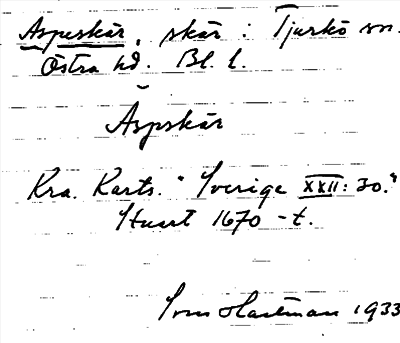 Aspeskär, skär i Tjurkö sn.
Östra hd. Bl. l.
Äspskär
Kra. Karts. "Sverige XXII: 30."
Stuart 1670-t.
Hartman 1933